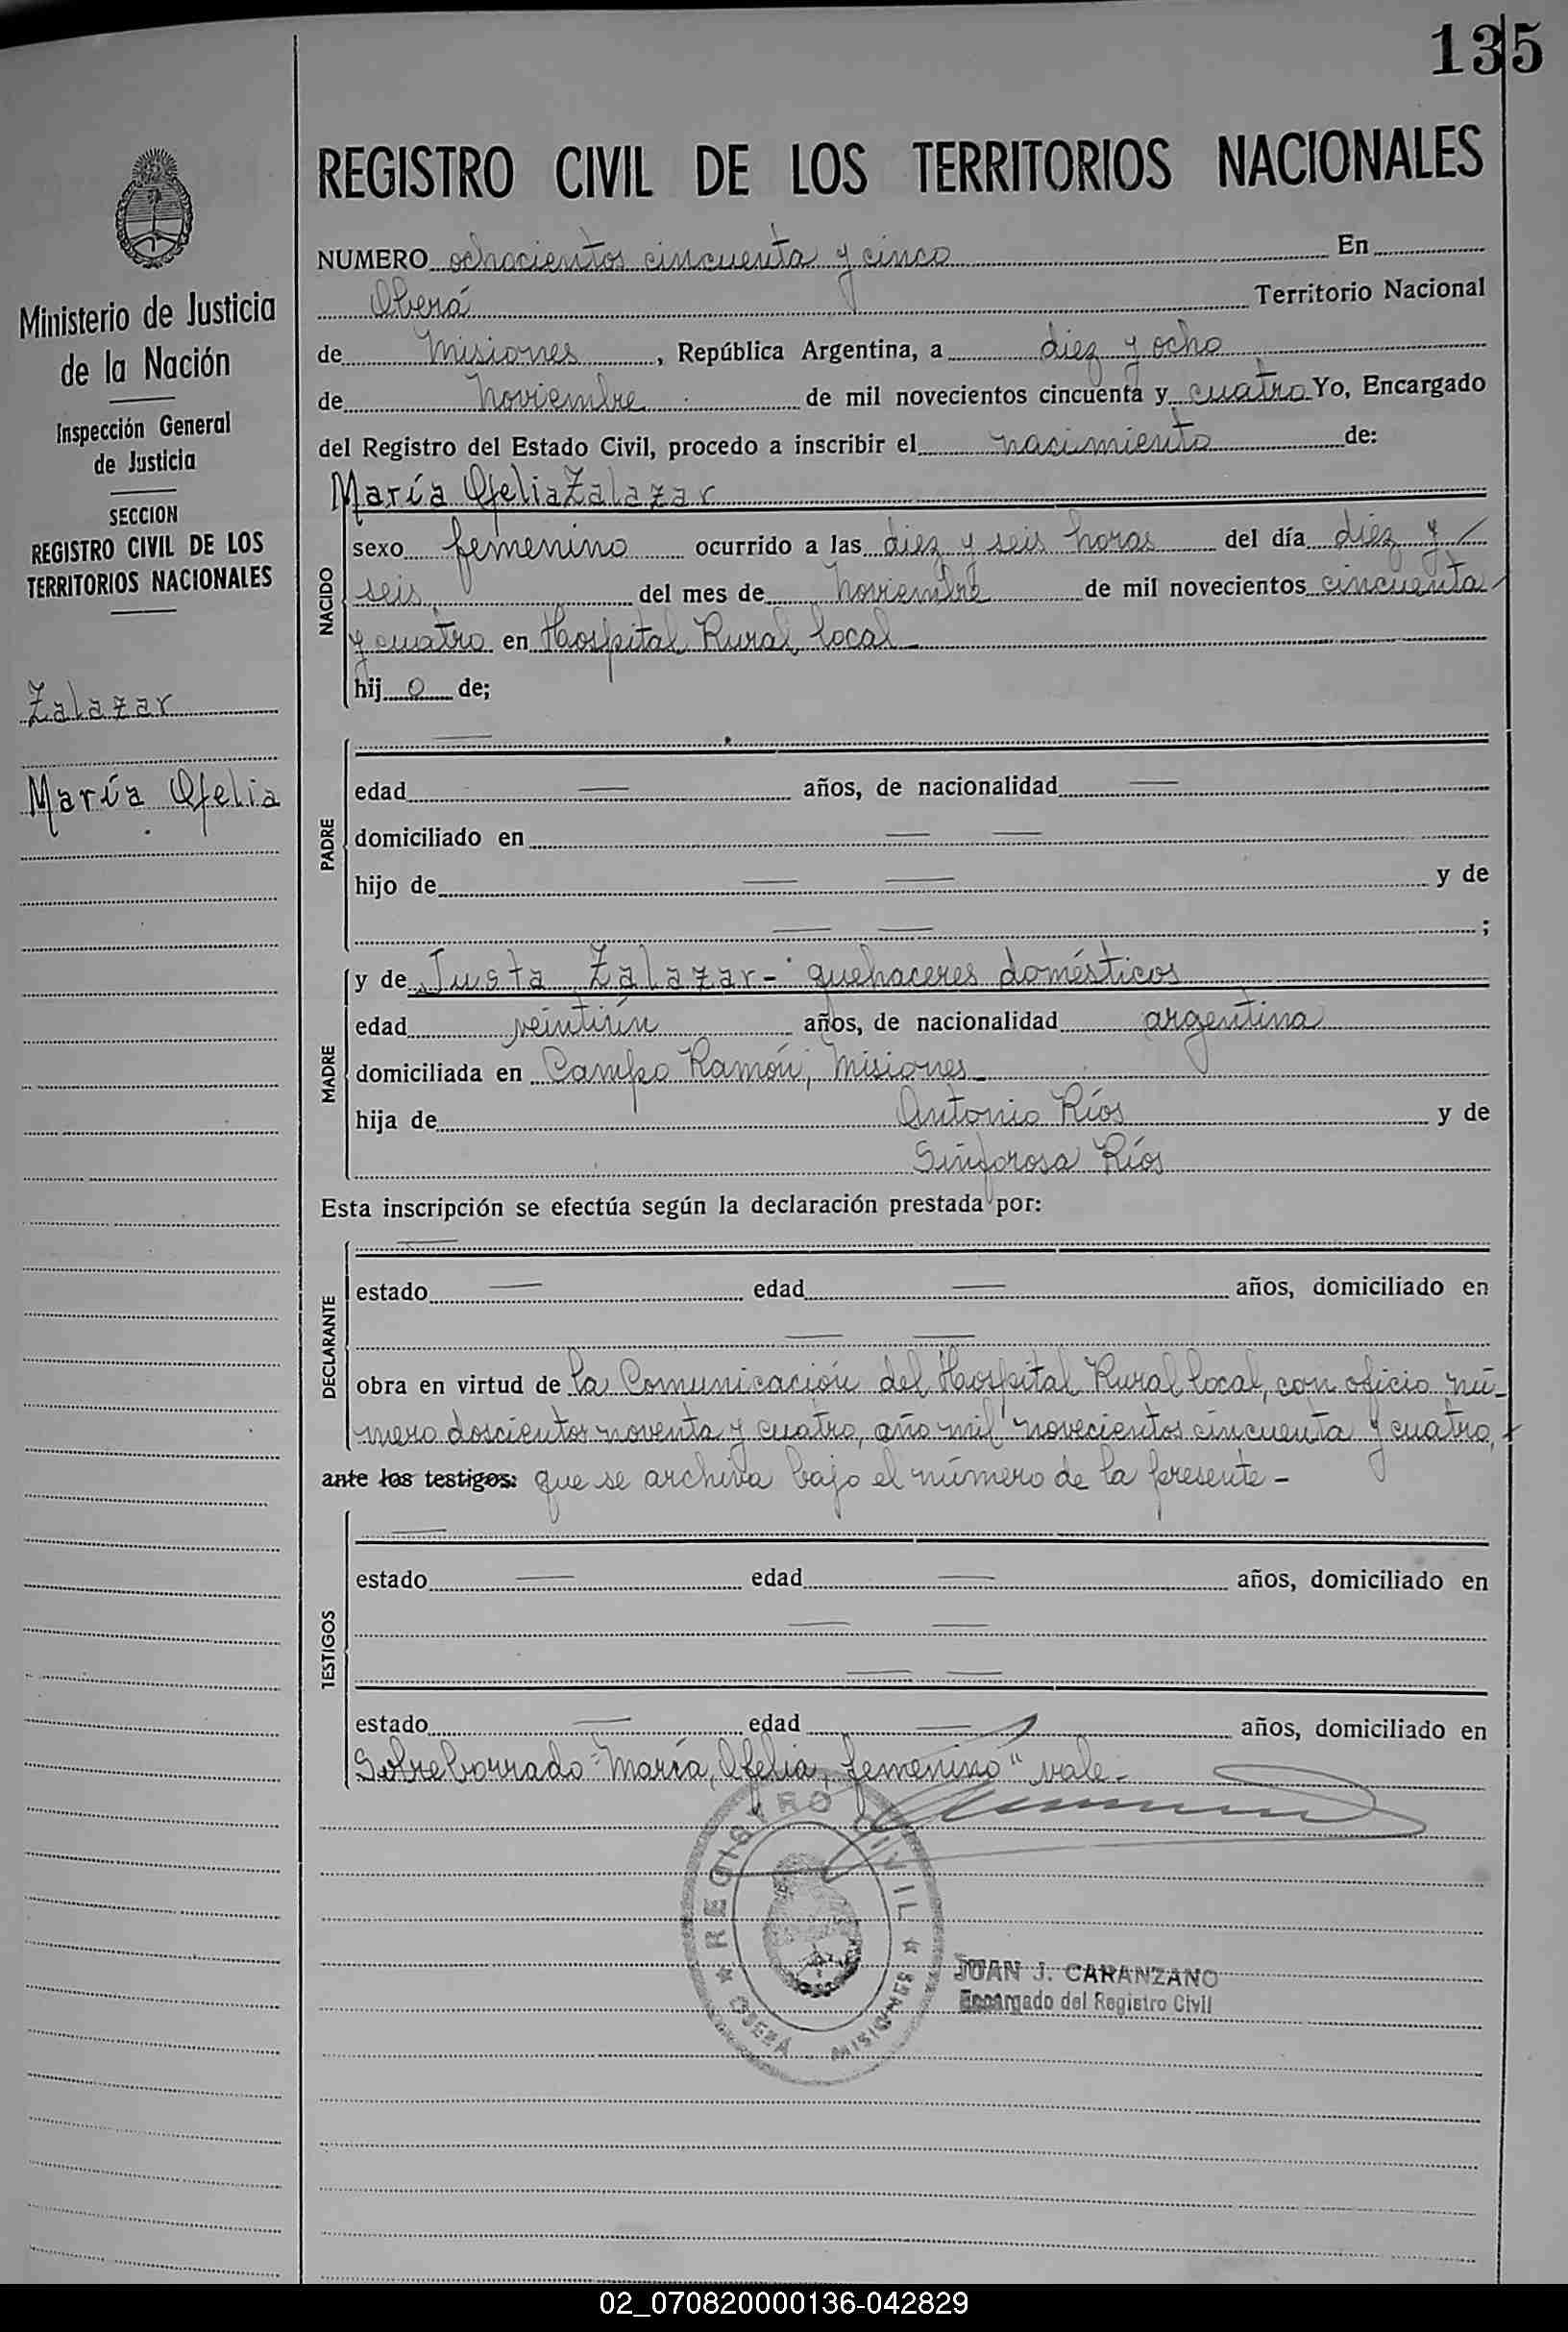 135
REGISTRO CIVIL DE LOS TERRITORIOS NACIONALES
Ministerio de Justicia
de la Nación
Inspección General
de Justicia
SECCION
REGISTRO CIVIL DE LOS
TERRITORIOS NACIONALES
Zalazar
María Ofelia
NUMERO ochocientos cincuenta y cinco En
Oberá Territorio Nacional
de Misiones, República Argentina, a diez y ocho
de Noviembre de mil novecientos cincuenta y cuatro Yo, Encargado
del Registro del Estado Civil, procedo a inscribir el nacimiento de:
María Ofelia Zalazar
NACIDO
sexo femenino ocurrido a las diez y seis horas del día diez y
seis del mes de Noviembre de mil novecientos cincuenta
y cuatro en Hospital Rural local
hij o de;
PADRE
edad — años, de nacionalidad —
domiciliado en — —
hijo de — — y de
— — ;
MADRE
y de Justa Zalazar - quehaceres domésticos
edad veintiún años, de nacionalidad argentina
domiciliada en Campo Ramón, Misiones
hija de Antonio Ríos y de
Sinforosa Ríos
Esta inscripción se efectúa según la declaración prestada por:
DECLARANTE
estado — edad — años, domiciliado en
— —
obra en virtud de la Comunicación del Hospital Rural local, con oficio nú-
mero doscientos noventa y cuatro, año mil novecientos cincuenta y cuatro,
ante los testigos: que se archiva bajo el número de la presente -
TESTIGOS
estado — edad — años, domiciliado en
— —
— —
estado — edad — años, domiciliado en
Sobreborrado "María, Ofelia, femenino" vale -
REGISTRO CIVIL
OBERÁ MISIONES
JUAN J. CARANZANO
Encargado del Registro Civil
02_070820000136-042829